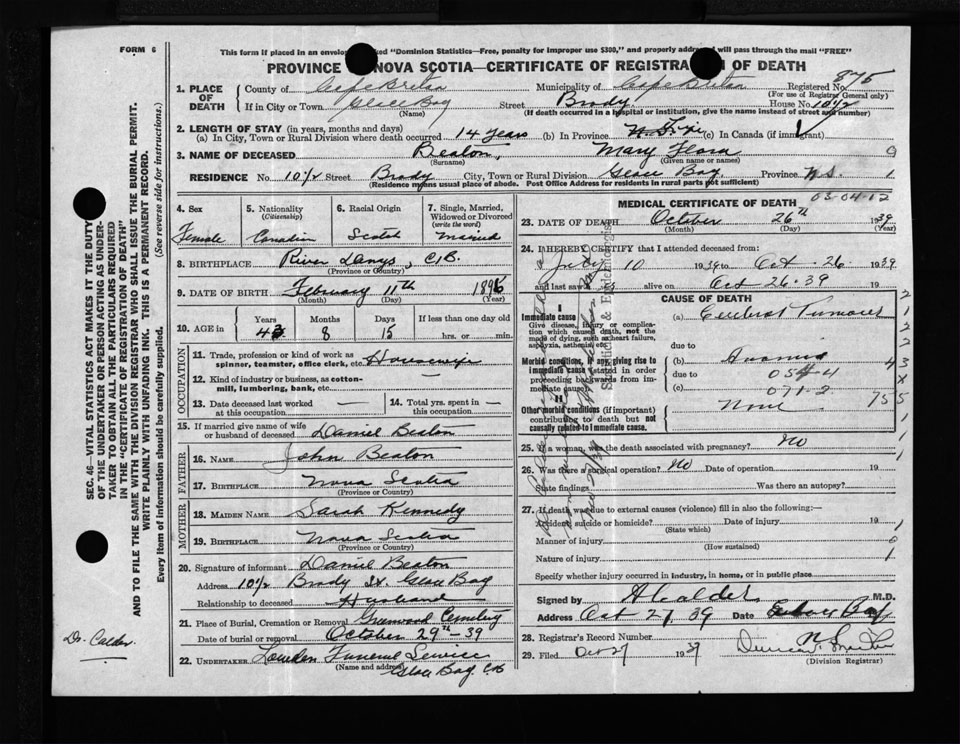 FORM 6
This form if placed in an envelope marked "Dominion Statistics—Free, penalty for improper use $300," and properly addressed will pass through the mail "FREE"
PROVINCE OF NOVA SCOTIA—CERTIFICATE OF REGISTRATION OF DEATH
875
1. PLACE OF DEATH
County of Cape Breton Municipality of Cape Breton Registered No.
(For use of Registrar General only)
If in City or Town Glace Bay Street Brody House No. 10 1/2
(Name) (If death occurred in a hospital or institution, give the name instead of street and number)
2. LENGTH OF STAY (in years, months and days)
(a) In City, Town or Rural Division where death occurred 14 years (b) In Province (c) In Canada (if immigrant)
3. NAME OF DECEASED Beaton, Mary Flora
(Surname) (Given name or names)
RESIDENCE No. 10 1/2 Street Brody City, Town or Rural Division Glace Bay Province N.S.
(Residence means usual place of abode. Post Office Address for residents in rural parts not sufficient)
4. Sex
Female
5. Nationality
(Citizenship)
Canadian
6. Racial Origin
Scotch
7. Single, Married, Widowed or Divorced
(write the word)
Married
8. BIRTHPLACE River Denys, C.B.
(Province or Country)
9. DATE OF BIRTH February 11th 1896
(Month) (Day) (Year)
10. AGE in
Years Months Days If less than one day
43 8 15 hrs. or min.
OCCUPATION
11. Trade, profession or kind of work as spinner, teamster, office clerk, etc. Housewife
12. Kind of industry or business, as cotton-mill, lumbering, bank, etc. —
13. Date deceased last worked at this occupation —
14. Total yrs. spent in this occupation —
15. If married give name of wife or husband of deceased Daniel Beaton
FATHER
16. NAME John Beaton
17. BIRTHPLACE Nova Scotia
(Province or Country)
MOTHER
18. MAIDEN NAME Sarah Kennedy
19. BIRTHPLACE Nova Scotia
(Province or Country)
20. Signature of informant Daniel Beaton
Address 10 1/2 Brody St. Glace Bay
Relationship to deceased Husband
21. Place of Burial, Cremation or Removal Greenwood Cemetery
Date of burial or removal October 29th - 39
22. UNDERTAKER Lowden Funeral Service
(Name and address) Glace Bay C.B
MEDICAL CERTIFICATE OF DEATH 03-04-12
23. DATE OF DEATH October 26th 1939
(Month) (Day) (Year)
24. I HEREBY CERTIFY that I attended deceased from:
July 10 1939 to Oct. 26 1939
and last saw alive on Oct 26. 39 19
CAUSE OF DEATH
I
Immediate cause
Give disease, injury or complication which caused death, not the mode of dying, such as heart failure, asphyxia, asthenia, etc.
(a) Cerebral Tumour
due to
Morbid conditions, if any, giving rise to immediate cause (stated in order proceeding backwards from immediate cause)
(b) Anaemia
due to 054-4
(c) 071-2
II
Other morbid conditions (if important) contributing to death but not causally related to immediate cause.
None
25. If a woman, was the death associated with pregnancy? No
26. Was there a surgical operation? No Date of operation 19
State findings Was there an autopsy?
27. If death was due to external causes (violence) fill in also the following:—
Accident, suicide or homicide? Date of injury 19
(State which)
Manner of injury
(How sustained)
Nature of injury
Specify whether injury occurred in industry, in home, or in public place
Signed by A Calder M.D.
Address Oct 27, 39 Date Glace Bay
28. Registrar's Record Number
29. Filed Oct 27 1939
(Division Registrar)
SEC. 46—VITAL STATISTICS ACT MAKES IT THE DUTY
OF THE UNDERTAKER OR PERSON ACTING AS UNDERTAKER TO OBTAIN ALL THE PARTICULARS REQUIRED
IN THE "CERTIFICATE OF REGISTRATION OF DEATH"
AND TO FILE THE SAME WITH THE DIVISION REGISTRAR WHO SHALL ISSUE THE BURIAL PERMIT.
WRITE PLAINLY WITH UNFADING INK. THIS IS A PERMANENT RECORD.
Every item of Information should be carefully supplied. (See reverse side for instructions.)
Dr. Calder